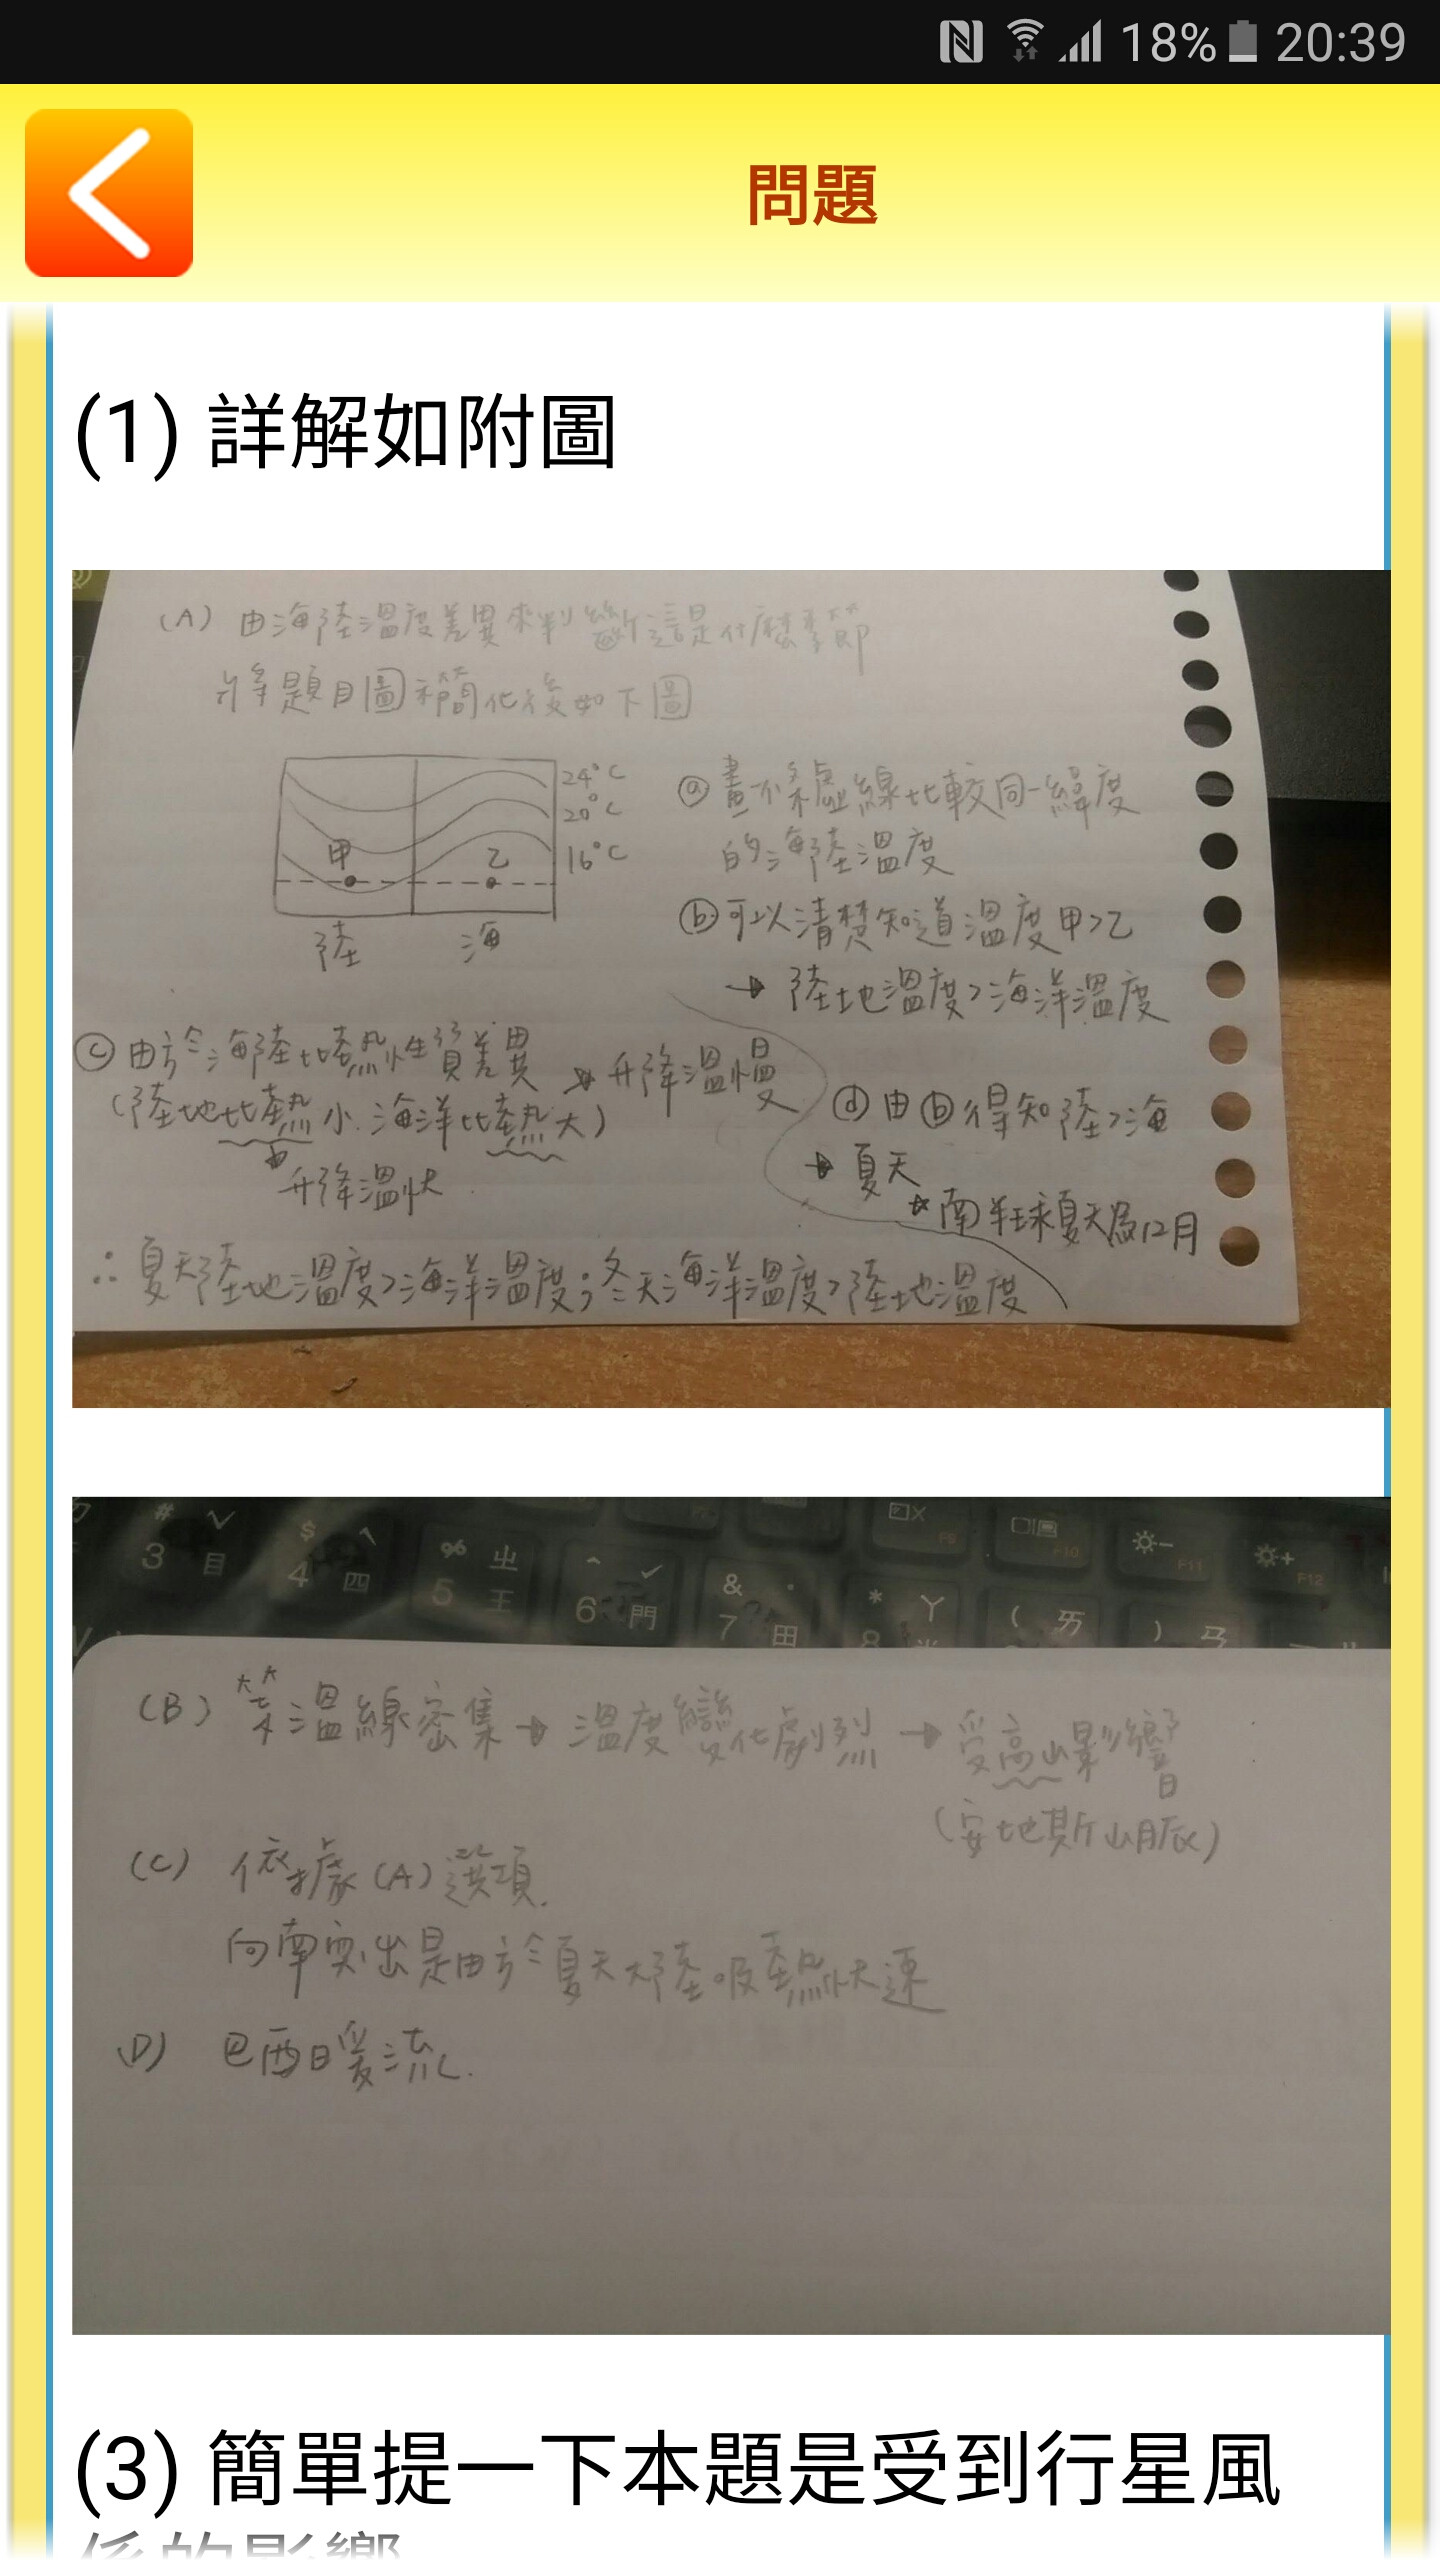 18% 20:39
問題
(1) 詳解如附圖
(A) 由海陸溫度差異來判斷這是什麼季節
將題目圖稍簡化後如下圖
24°C
20°C
16°C
甲 乙
陸 海
ⓐ 畫一條虛線比較同一緯度
的海陸溫度
ⓑ 可以清楚知道溫度甲>乙
→ 陸地溫度>海洋溫度
ⓒ 由於海陸比熱性質差異
(陸地比熱小.海洋比熱大) → 升降溫慢
升降溫快
∴ 夏天陸地溫度>海洋溫度;冬天海洋溫度>陸地溫度
ⓓ 由ⓑ得知陸>海
→ 夏天
* 南半球夏天為12月
# 3 目 $ 4 四 % 5 王 ^ 6 門 & 7 田 * 8 ㄚ ( ㄞ ) ㄢ
F9 F10 F11 F12
(B) 等溫線密集 → 溫度變化劇烈 → 受高山影響
(安地斯山脈)
(C) 依據(A)選項.
向南突出是由於夏天大陸吸熱快速
(D) 巴西暖流.
(3) 簡單提一下本題是受到行星風
係的影響